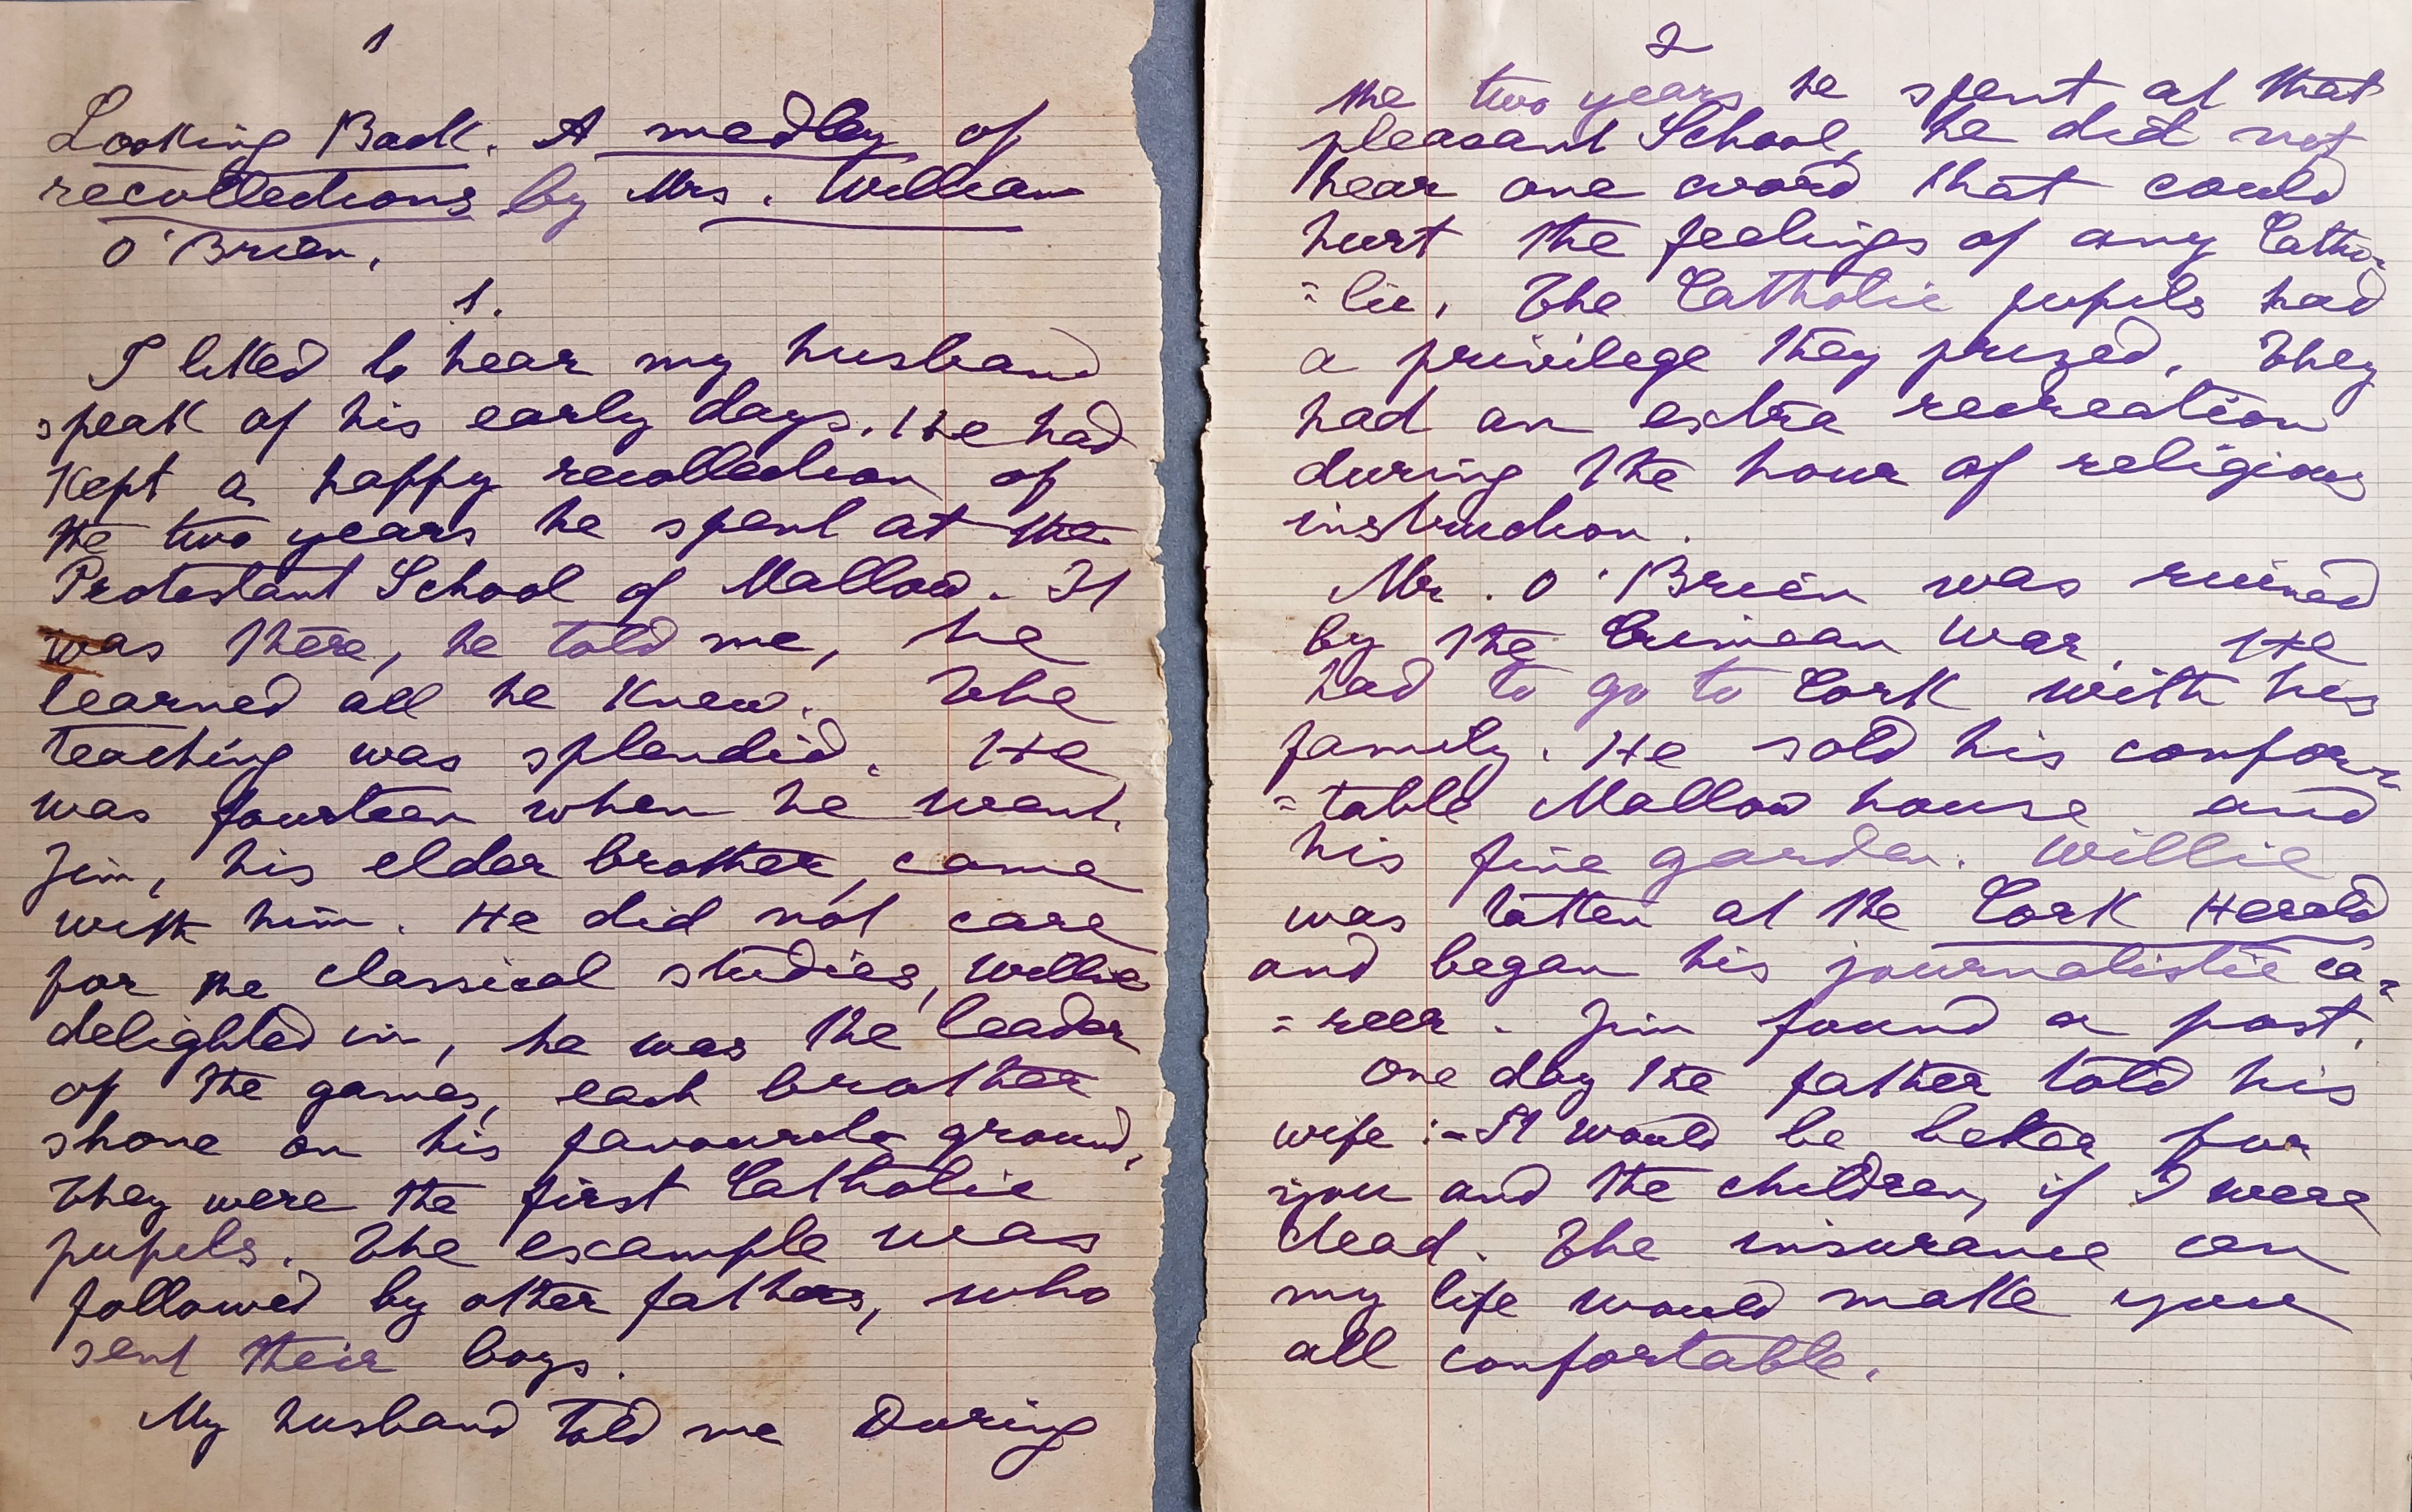 1
Looking Back. A medley of
recollections by Mrs. William
O'Brien.
1.
I liked to hear my husband
speak of his early days. He had
kept a happy recollection of
the two years he spent at the
Protestant School of Mallow. It
was there, he told me, he
learned all he knew. The
teaching was splendid. He
was fourteen when he went.
Jim, his elder brother, came
with him. He did not care
for the classical studies, Willie
delighted in, he was the leader
of the games, each brother
shone on his favourite ground,
They were the first Catholic
pupils. The example was
followed by other fathers, who
sent their boys.
My husband told me During
2
the two years he spent at that
pleasant School, he did not
hear one word that could
hurt the feelings of any Catho-
=lic. The Catholic pupils had
a privilege they prized. They
had an extra recreation
during the hour of religious
instruction.
Mr. O'Brien was ruined
by the Crimean War. He
had to go to Cork with his
family. He sold his comfor-
=table Mallow house and
his fine garden. Willie
was taken at the Cork Herald
and began his journalistic ca-
=reer. Jim found a post.
One day the father told his
wife :- It would be better for
you and the children, if I were
dead. The insurance on
my life would make you
all comfortable.